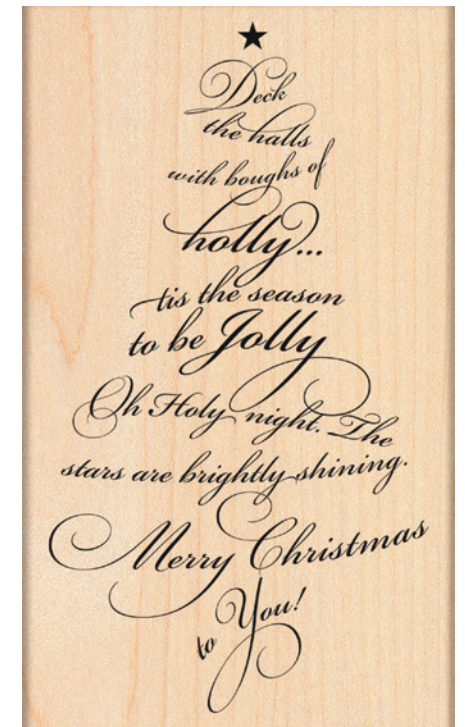 Deck
the halls
with boughs of
holly...
tis the season
to be Jolly
Oh Holy night. The
stars are brightly shining.
Merry Christmas
to You!